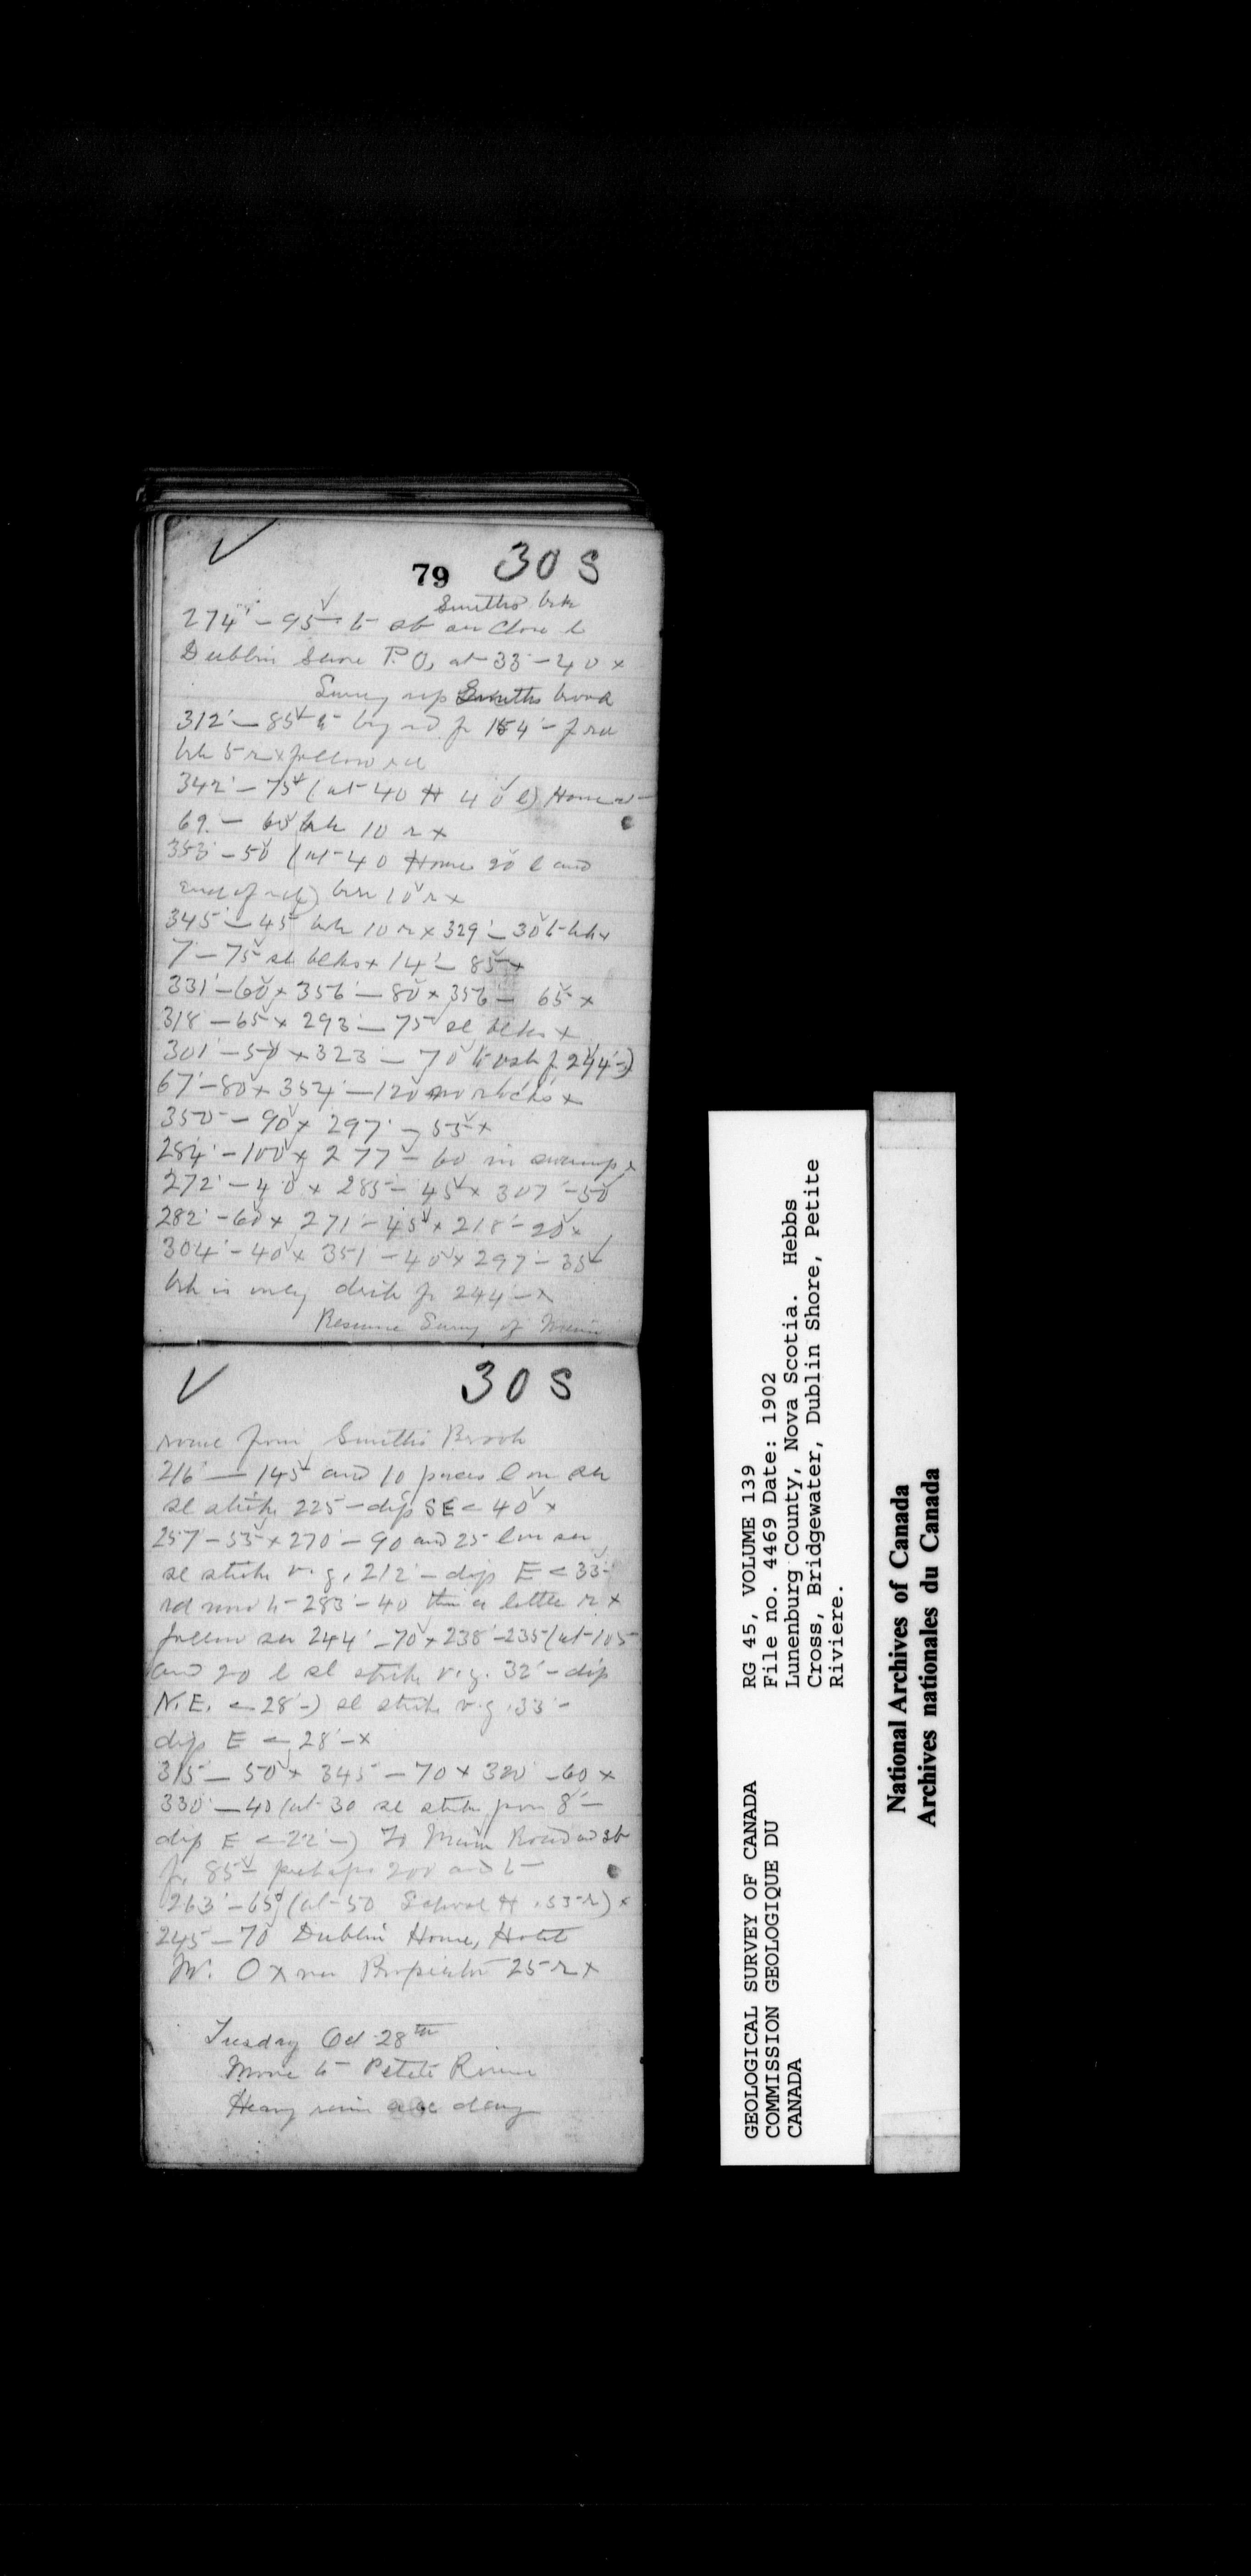 79 30 S
Smiths brk
274 - 95 to st sea close l
Dublin Shore P.O. at 33 - 40 x
Survey up Smiths brook
312 - 85 to by rd fr 154 - f rd
brk 5 r x follow rd
342 - 75 (at 40 H 40 l) House
69 - 60 brk 10 r x
353 - 50 (at 40 House 20 l and
end of rd) brk 10 r x
345 - 45 brk 10 r x 329 - 30 to brk x
7 - 75 sl blks x 14 - 85 x
331 - 60 x 356 - 80 x 356 - 65 x
318 - 65 x 293 - 75 sl blks x
301 - 50 x 323 - 70 f 244 -)
67 - 80 x 354 - 120 no rocks x
350 - 90 x 297 - 55 x
284 - 100 x 277 - 60 in swamp x
272 - 40 x 285 - 45 x 307 - 50
282 - 60 x 271 - 45 x 218 - 20 x
304 - 40 x 351 - 40 x 297 - 35
brk is only ditch fr 244 - x
Resume Survey of Main
30 S
from Smiths Brook
216 - 145 and 10 paces l on sea
sl strike 225 - dip SE < 40 x
257 - 55 x 270 - 90 and 25 l on sea
sl strike v.g. 212 - dip E < 33 -
rd now to 283 - 40 then a little r x
follow sea 244 - 70 x 238 - 235 (at 105
and 20 l sl strike v.g. 32 - dip
N.E. < 28 -) sl strike v.g. 33 -
dip E < 28 - x
315 - 50 x 345 - 70 x 320 - 60 x
330 - 40 (at 30 sl strike poor 8 -
dip E < 22 -) To Main Road
fr 85 - perhaps 200 and to
263 - 65 (at 50 School H 35 r) x
245 - 70 Dublin House, Hotel
Mr. Oxner Proprietor 25 r x
Tuesday Oct 28th
Move to Petite Riviere
Heavy rain all day
RG 45, VOLUME 139
File no. 4469 Date: 1902
Lunenburg County, Nova Scotia. Hebbs
Cross, Bridgewater, Dublin Shore, Petite
Riviere.
GEOLOGICAL SURVEY OF CANADA
COMMISSION GEOLOGIQUE DU
CANADA
National Archives of Canada
Archives nationales du Canada